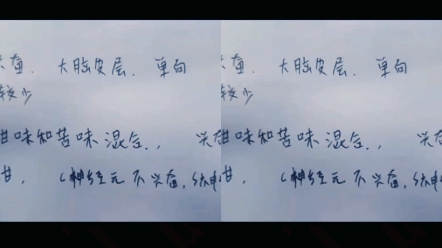 大脑皮层. 单向
较少
甜味和苦味混合.,
(神经元不兴奋,
大脑皮层. 单向
较少
甜味和苦味混合.,
(神经元不兴奋,